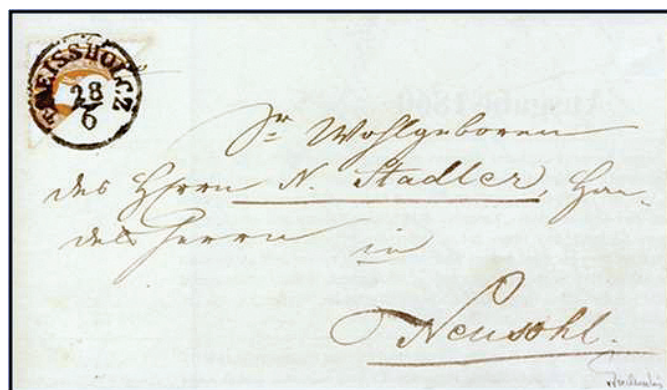 THEISSHOLCZ
28
6
Sr Wohlgeboren
des Herrn N. Stadler, Han-
dels Herrn in
Neusohl.